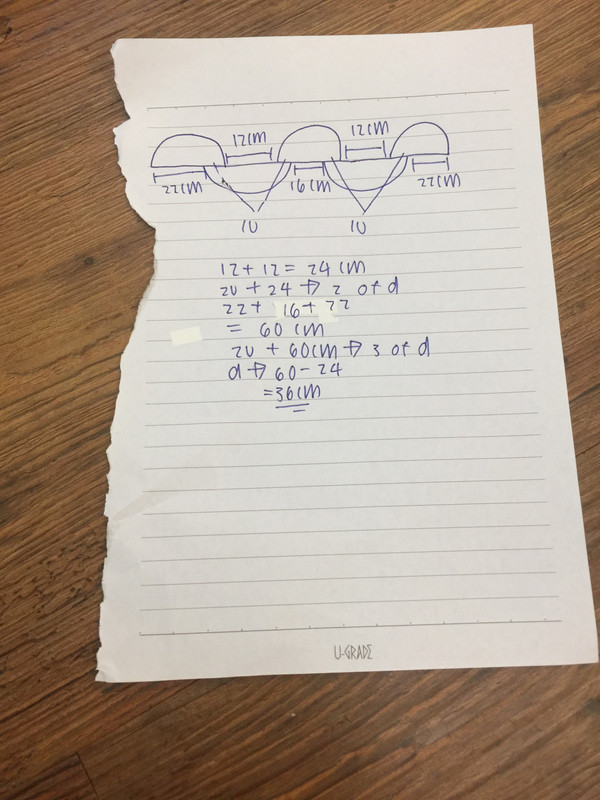 12CM 12CM
22CM 16CM 22CM
1U 1U
12+12= 24CM
2U + 24 → 2 of d
22+ 16+ 22
= 60 CM
2U + 60CM → 3 of d
d → 60-24
=36CM
U-GRADE